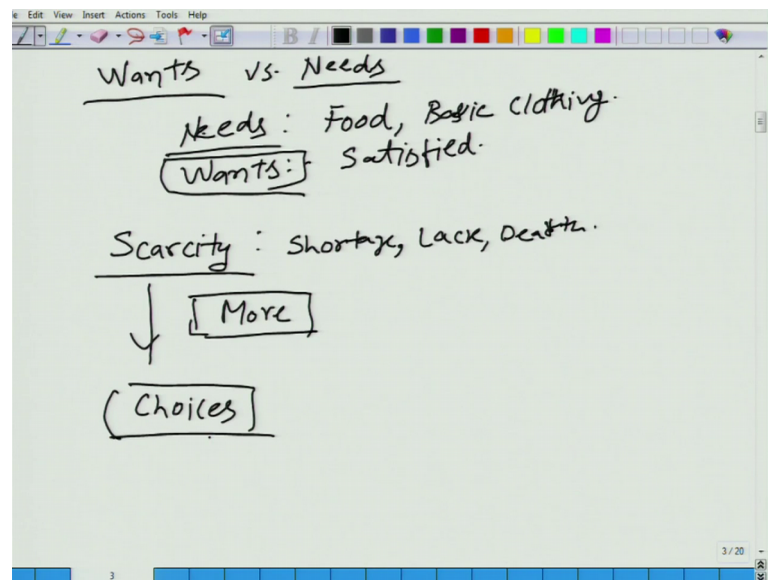 Edit View Insert Actions Tools Help
B I
Wants vs. Needs
Needs: Food, Basic Clothing.
Wants: Satisfied.
Scarcity: Shortage, Lack, Dearth.
More
Choices
3/20
3